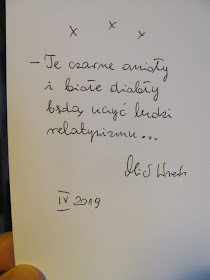 x x x
– Te czarne anioły
i białe diabły
będą uczyć ludzi
relatywizmu...
IV 2019